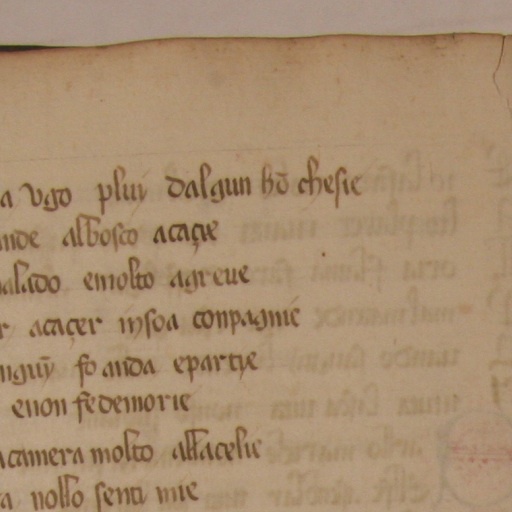 a vgo pluy dalgun hō chesie
ande alboſco acaçie
malado emolto agreue
r acaçer inſoa conpagnie
ſo anda epartie
enon ſedemorie
acamera molto allaceſie
a nollo ſenti mie